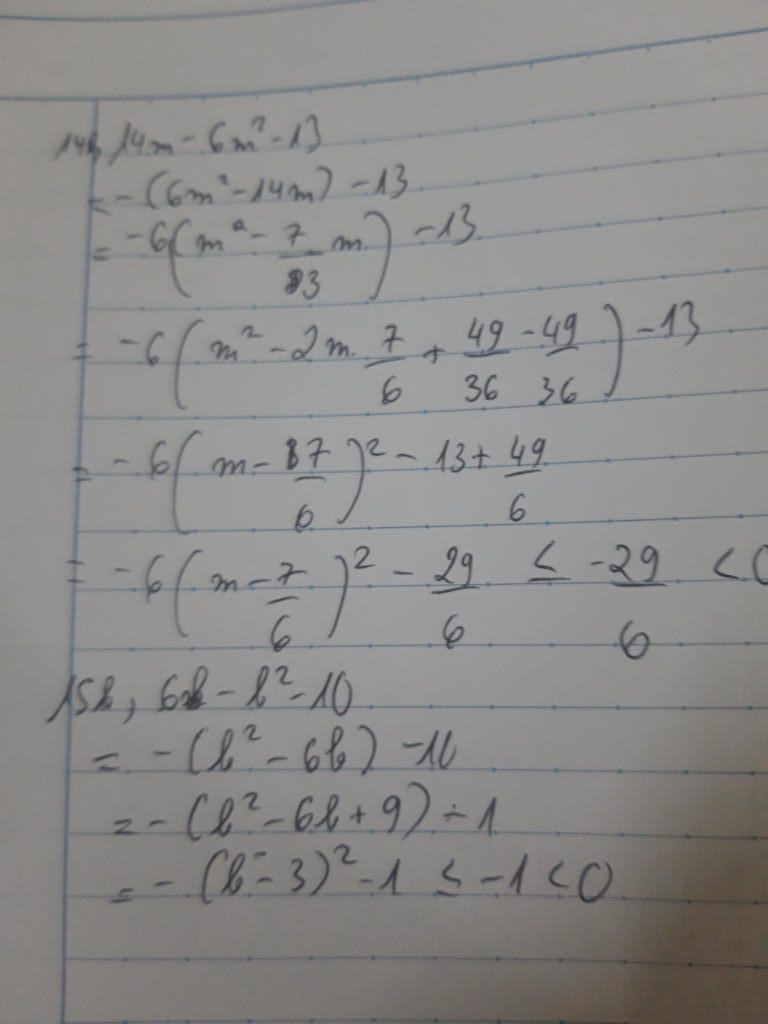 14b, 14m - 6m² - 13
= -(6m² - 14m) - 13
= -6(m² - 7/3 m) - 13
= -6(m² - 2m. 7/6 + 49/36 - 49/36) - 13
= -6(m - 7/6)² - 13 + 49/6
= -6(m - 7/6)² - 29/6 ≤ -29/6 < 0
15b, 6b - b² - 10
= -(b² - 6b) - 10
= -(b² - 6b + 9) - 1
= -(b - 3)² - 1 ≤ -1 < 0